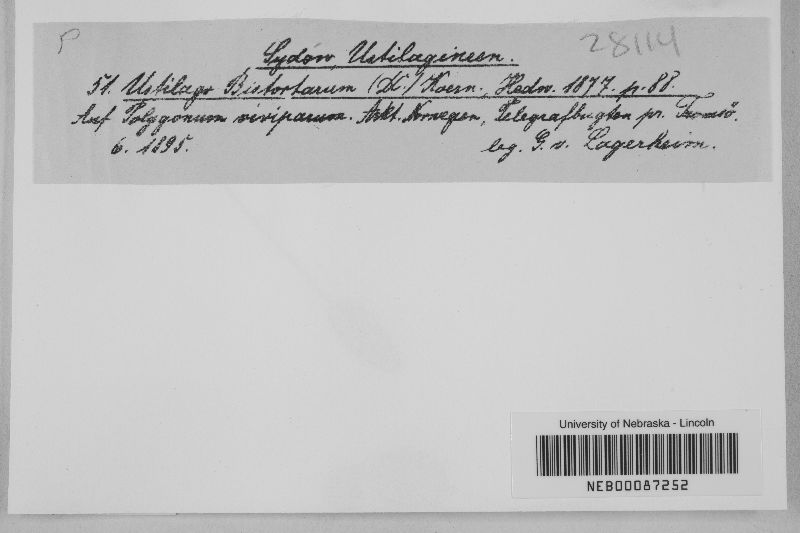 P
28114
Sydow, Ustilagineen.
51. Ustilago Bistortarum (DC.) Koern. Hedw. 1877. p. 88.
Auf Polygonum viviparum. Arkt. Norwegen, Telegrafbugten pr. Tromsö.
6. 1895. leg. G. v. Lagerheim.
University of Nebraska - Lincoln
NEB00087252